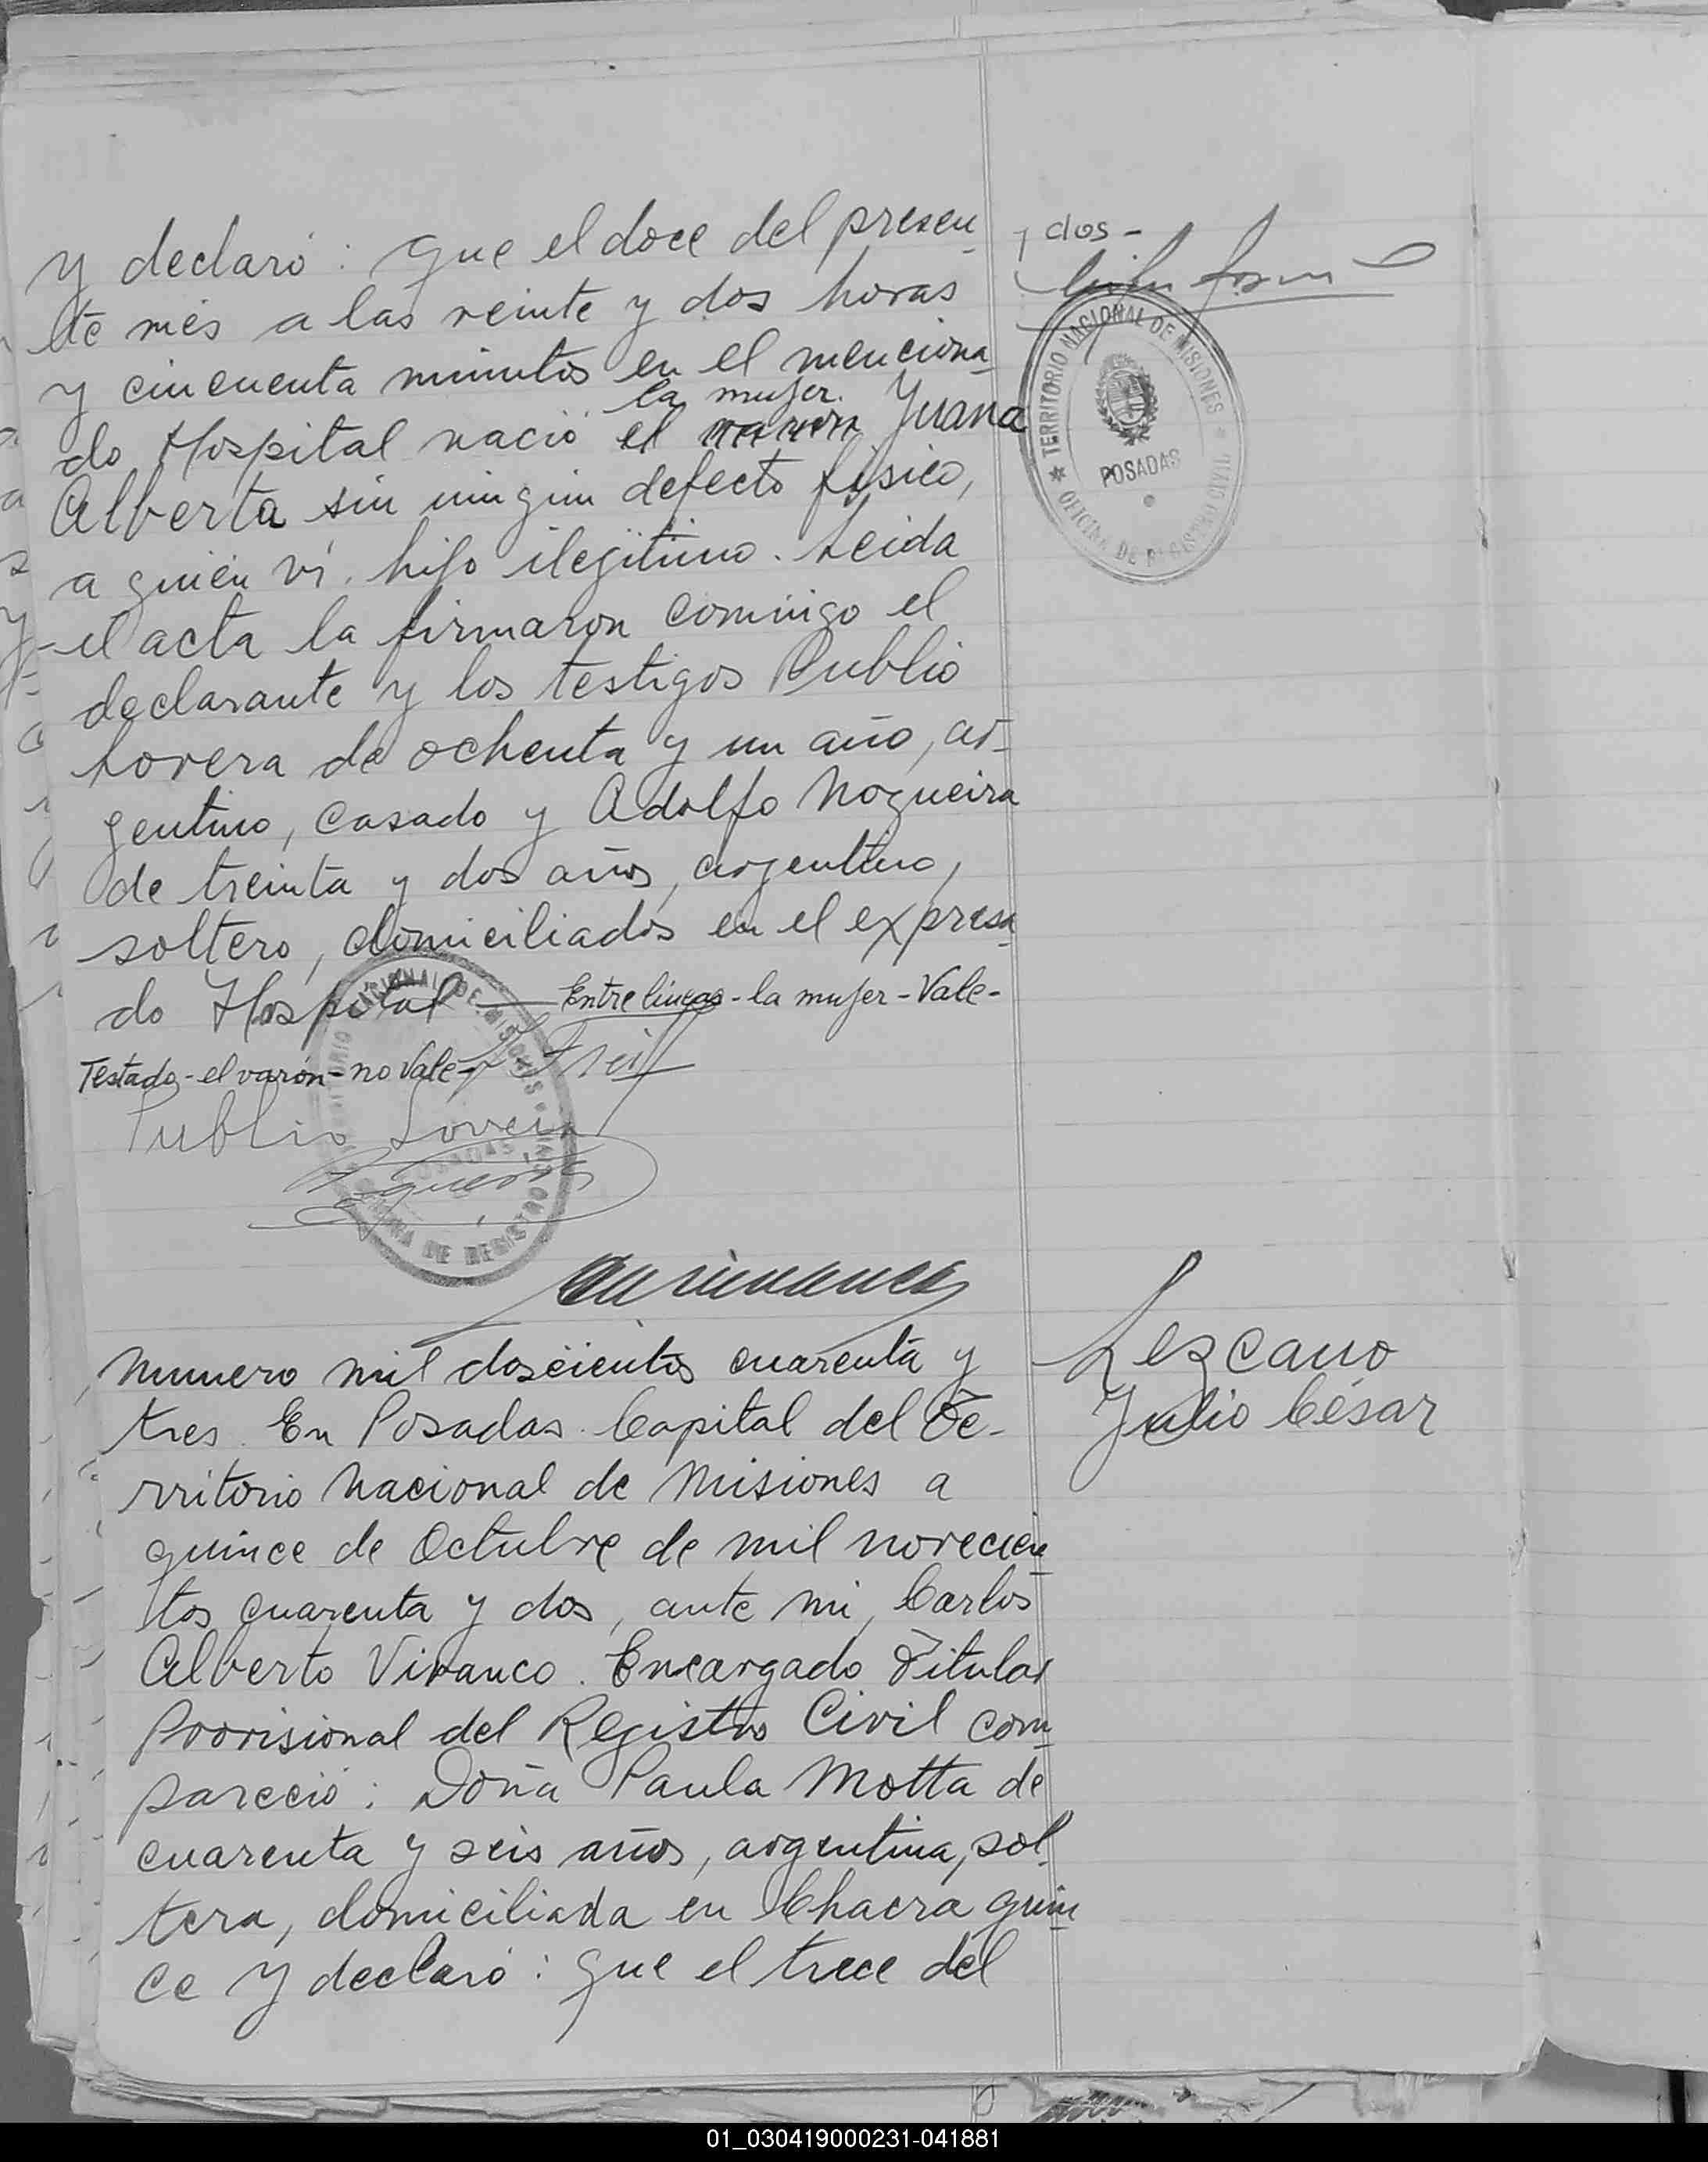 y declaró: que el doce del presen-
te mes a las veinte y dos horas
y cincuenta minutos en el menciona-
la mujer.
do Hospital nació el varon Juana
Alberta sin ningun defecto fisico,
a quién ví. hijo ilegitimo. Leida
el acta la firmaron conmigo el
declarante y los testigos Publio
Lovera de ochenta y un año, ar-
gentino, casado y Adolfo Nogueira
de treinta y dos años, argentino,
soltero, domiciliados en el expresa-
do Hospital — Entre lineas - la mujer - Vale-
Testado - el varón - no Vale-
Publio Lovera
y dos -
TERRITORIO NACIONAL DE MISIONES
POSADAS
OFICINA DE REGISTRO CIVIL
Numero mil doscientos cuarenta y
tres. En Posadas. Capital del Te-
rritorio Nacional de Misiones a
quince de Octubre de mil novecien-
tos cuarenta y dos, ante mi, Carlos
Alberto Vivanco. Encargado Titular
Provisional del Registro Civil com-
pareció: Doña Paula Motta de
cuarenta y seis años, argentina, sol-
tera, domiciliada en Chacra quin-
ce y declaró: que el trece del
Lezcano
Julio César
01_030419000231-041881